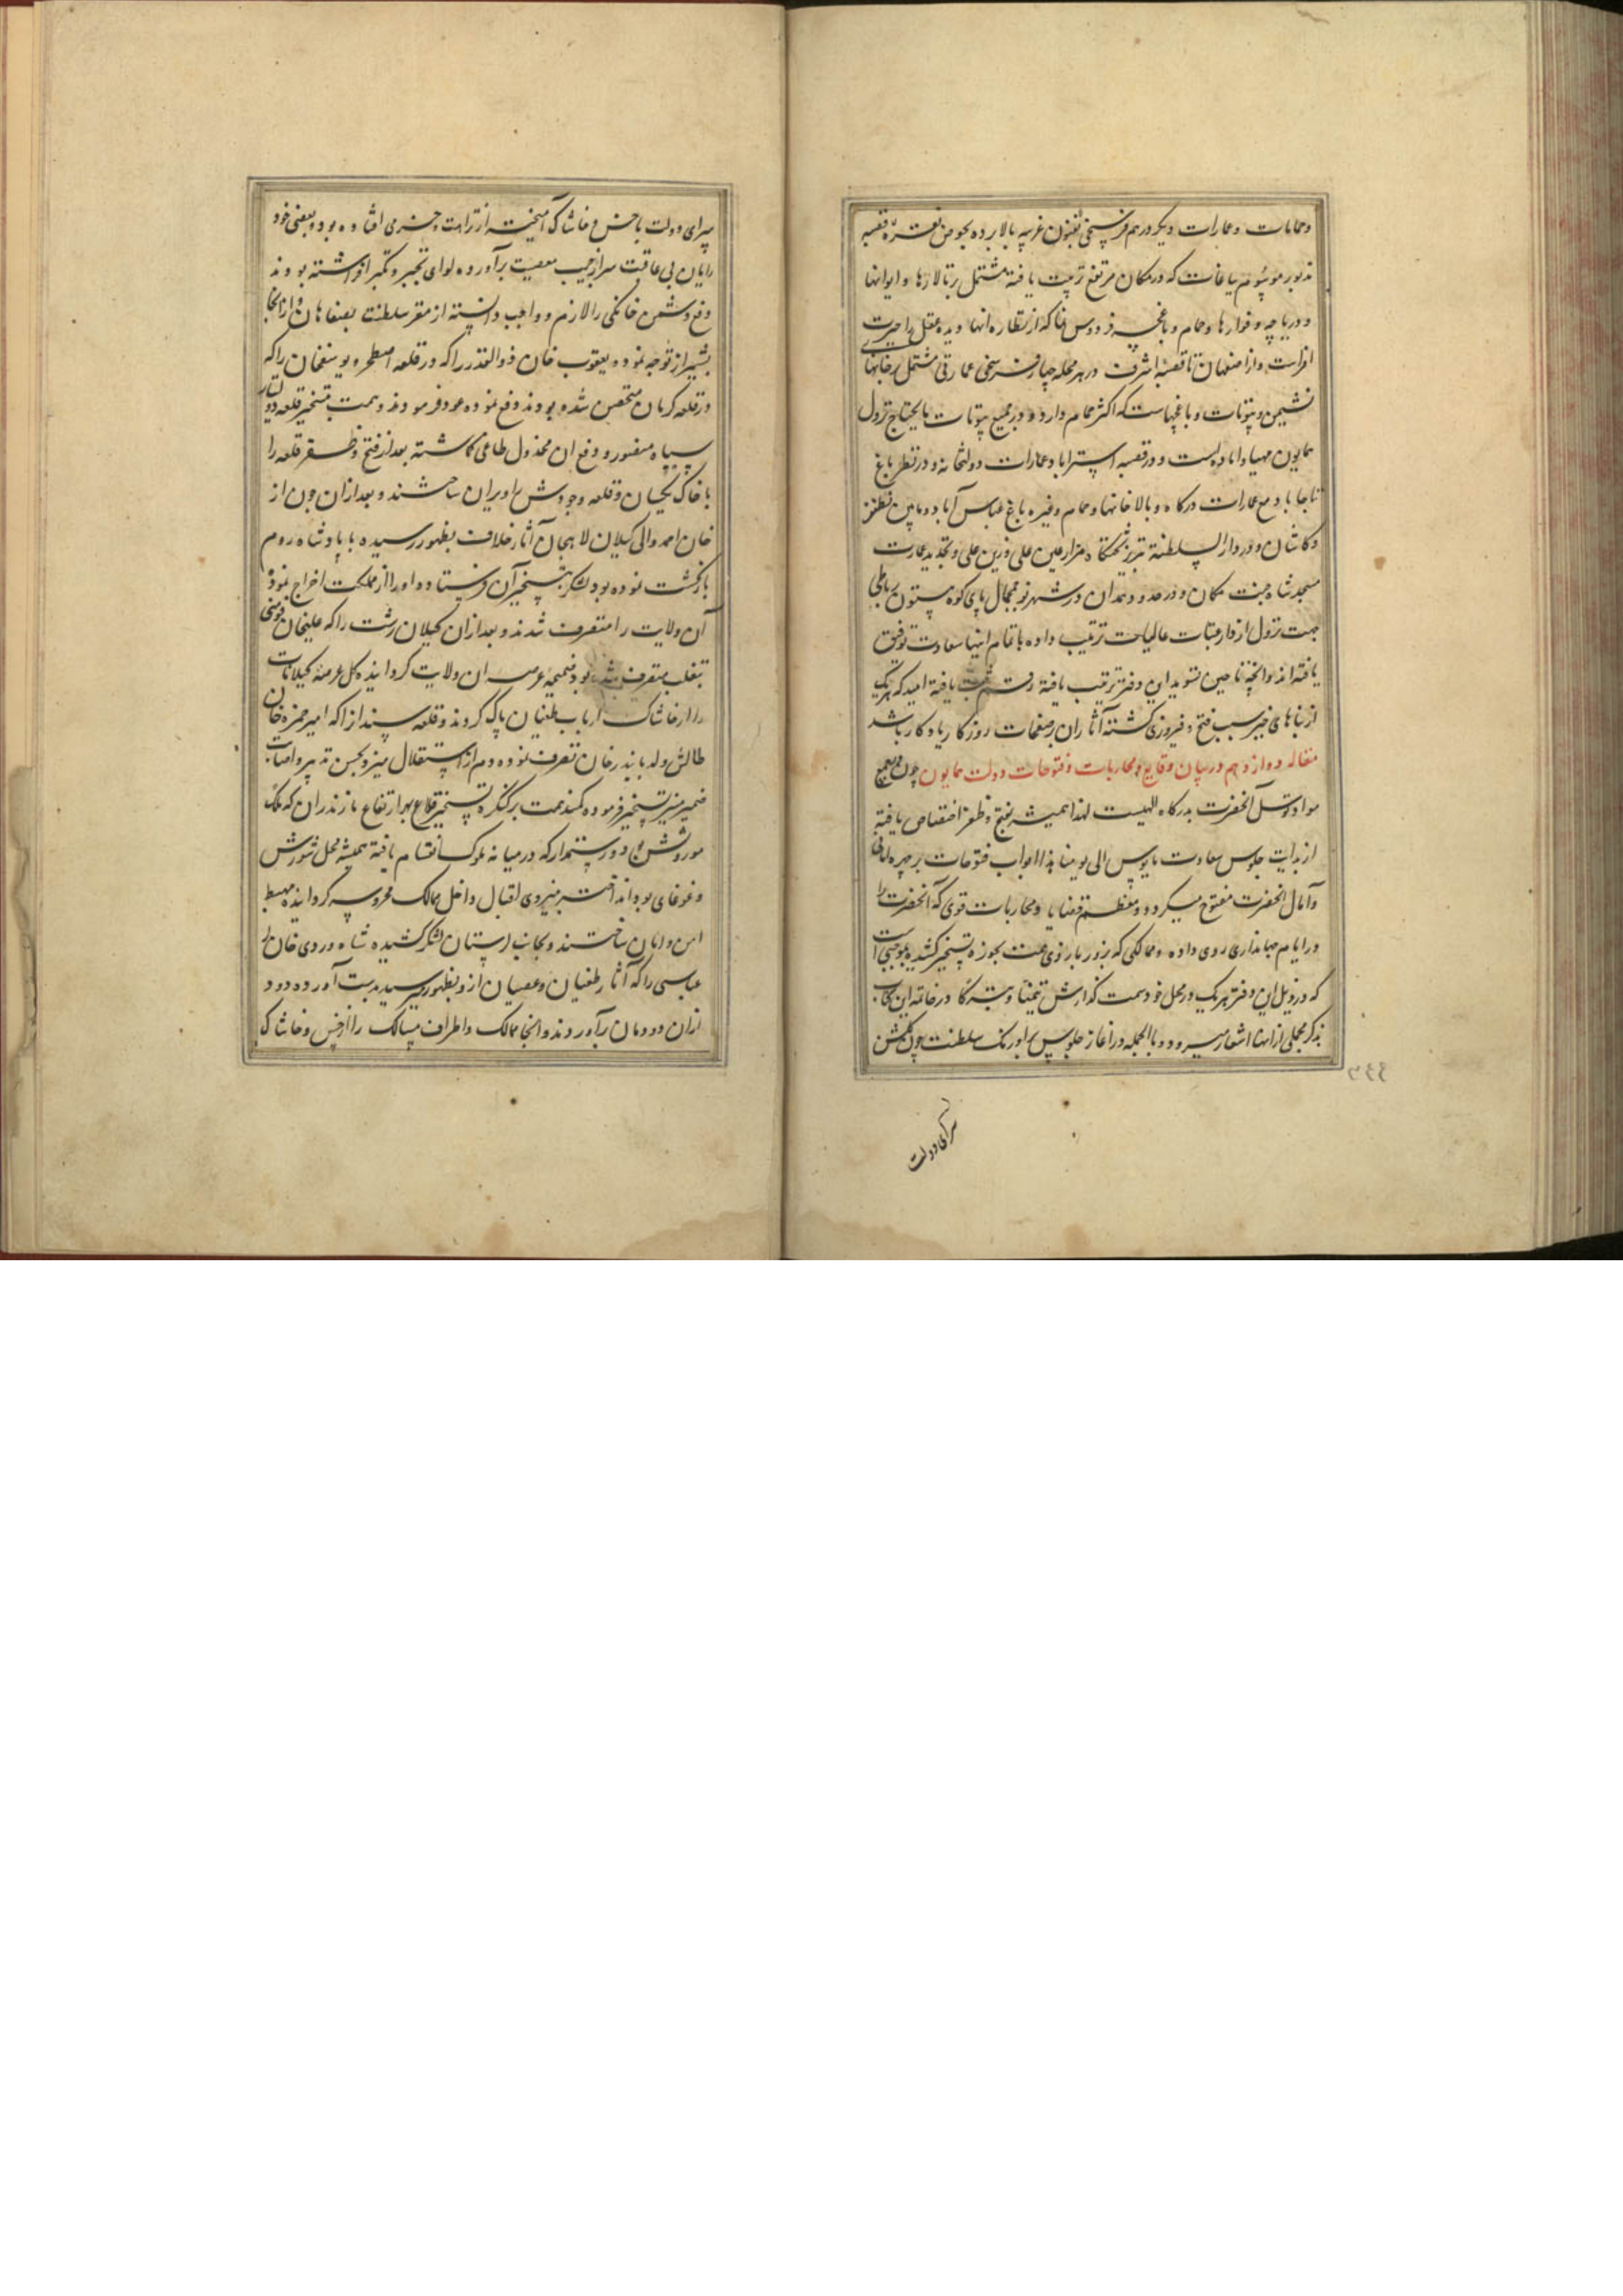 وحمامات و عمارات دیگر در هم فرسخی بفنون غریبه بالا برده بحوض نقره قصبه
مذبور موسوم بباغات که در مکان مرتفع ترتیب یافته مشتمل بر تالارها و ایوانها
و دریاچه و فوارها و حمام و باغچه فردوس نما که از نظاره انها دیده عقل را حیرت
افزاست و از اصفهان تا قصبه اشرف در هر محله چهار فرسخی عمارتی مشتمل بر خانها
نشیمن و بیوتات و باغچهاست که اکثر حمام دارد و در جمیع بیوتات مایحتاج نزول
همایون مهیا و اماده است و در قصبه استراباد عمارات دولتخانه و در نطنز باغ
تاجاباد مع عمارات درگاه و بالاخانها و حمام و غیره باغ عباس آباد و مابین نطنز
و کاشان و در دار السلطنه تبریز مزار عین علی و زین علی و تجدید عمارت
مسجد شاه جنت مکان و در حدود همدان در شهر نو پای کوه بیستون رباطی
جهت نزول از دار عتبات عالیات ترتیب داده باتمام اینها سعادت توفیق
یافته‌اند و انچه تا حین تسوید این دفتر ترتیب یافته رقم ثبت یافته امید که هریک
از بناهای خیر سبب فتح و فیروزی گشته آثار ان بر صفحات روزگار یادکار باشد
مقاله دوازدهم در بیان وقایع و محاربات و فتوحات دولت همایون چون جمیع
مواد توسل آنحضرت بدرگاه الهیست لهذا همیشه بفتح و ظفر اختصاص یافته
از بدایت جلوس سعادت مانوس الی یومنا هذا ابواب فتوحات بر چهره امانی
و آمال آنحضرت مفتوح میگردد و معظم قضایا و محاربات قوی که آنحضرت را
در ایام جهانداری روی داده و ممالکی که بزور بازوی همت بحوزه تسخیر کشیده بموجبی است
که در ذیل این دفتر هریک در محل خود سمت گذارش در خاتمه این کتاب
بذکر مجملی از انها اشعار میرود و بالجمله در اغاز جلوس بر اورنک سلطنت چون گلشن
سرای دولت
۳۴۴
سرای دولت با خس و خاشاک آمیخته از نزاهت و خرمی افتاده بود و بعضی خود
رایان بی عاقبت سر از جیب معصیت برآورده لوای تجبر و تکبر افراشته بودند
دفع دشمن خانگی را لازم و واجب دانسته از مقر سلطنت بصفاهان و از انجا
بشیراز توجه نموده و یعقوب خان ذوالقدر را که در قلعه اصطخر و یوسفخان را که
در قلعه کرمان متحصن شده بودند دفع نموده عود فرمودند و همت بتسخیر قلعه
سپاه منصور و دفع ان مخذول طاغی گماشته بعد از فتح و ظفر قلعه را
با خاک یکسان و قلعه وجودش را ویران ساختند و بعد ازان چون از
خان احمد والی گیلان لاهجان آثار خلاف بظهور رسیده با پادشاه روم
بازگشت نموده بود لشکر بتسخیر آن فرستاده او را از مملکت اخراج نموده
آن ولایت را متصرف شدند و بعد ازان گیلان رشت را که علیخان
بتغلب متصرف شده بود ضمیمه عرصه ان ولایت گردانیده کل عرصه گیلانات
را از خاشاک ارباب طغیان پاک کردند و قلعه سپندار که امیر حمزه خان
طالش ولد بایندر خان تصرف نموده دم از استقلال میزد بحسن تدبیر و اصابت
ضمیر منیر تسخیر فرموده کمند همت بر کنکره تسخیر قلاع بهر ارتفاع مازندران که ملک
موروثش بود و رستمدار که در میانه ملوک انقسام یافته همیشه محل شورش
و غوغای بود انداخته بنیروی اقبال داخل ممالک محروسه گردانیده مهبط
امن و امان ساختند و بجانب لرستان لشکر کشیده شاه وردی خان لر
عباسی را که آثار طغیان و عصیان ازو بظهور میرسید بدست آورده دود
ازان دودمان برآوردند و انجا ممالک و اطراف مسالک را از خس و خاشاک